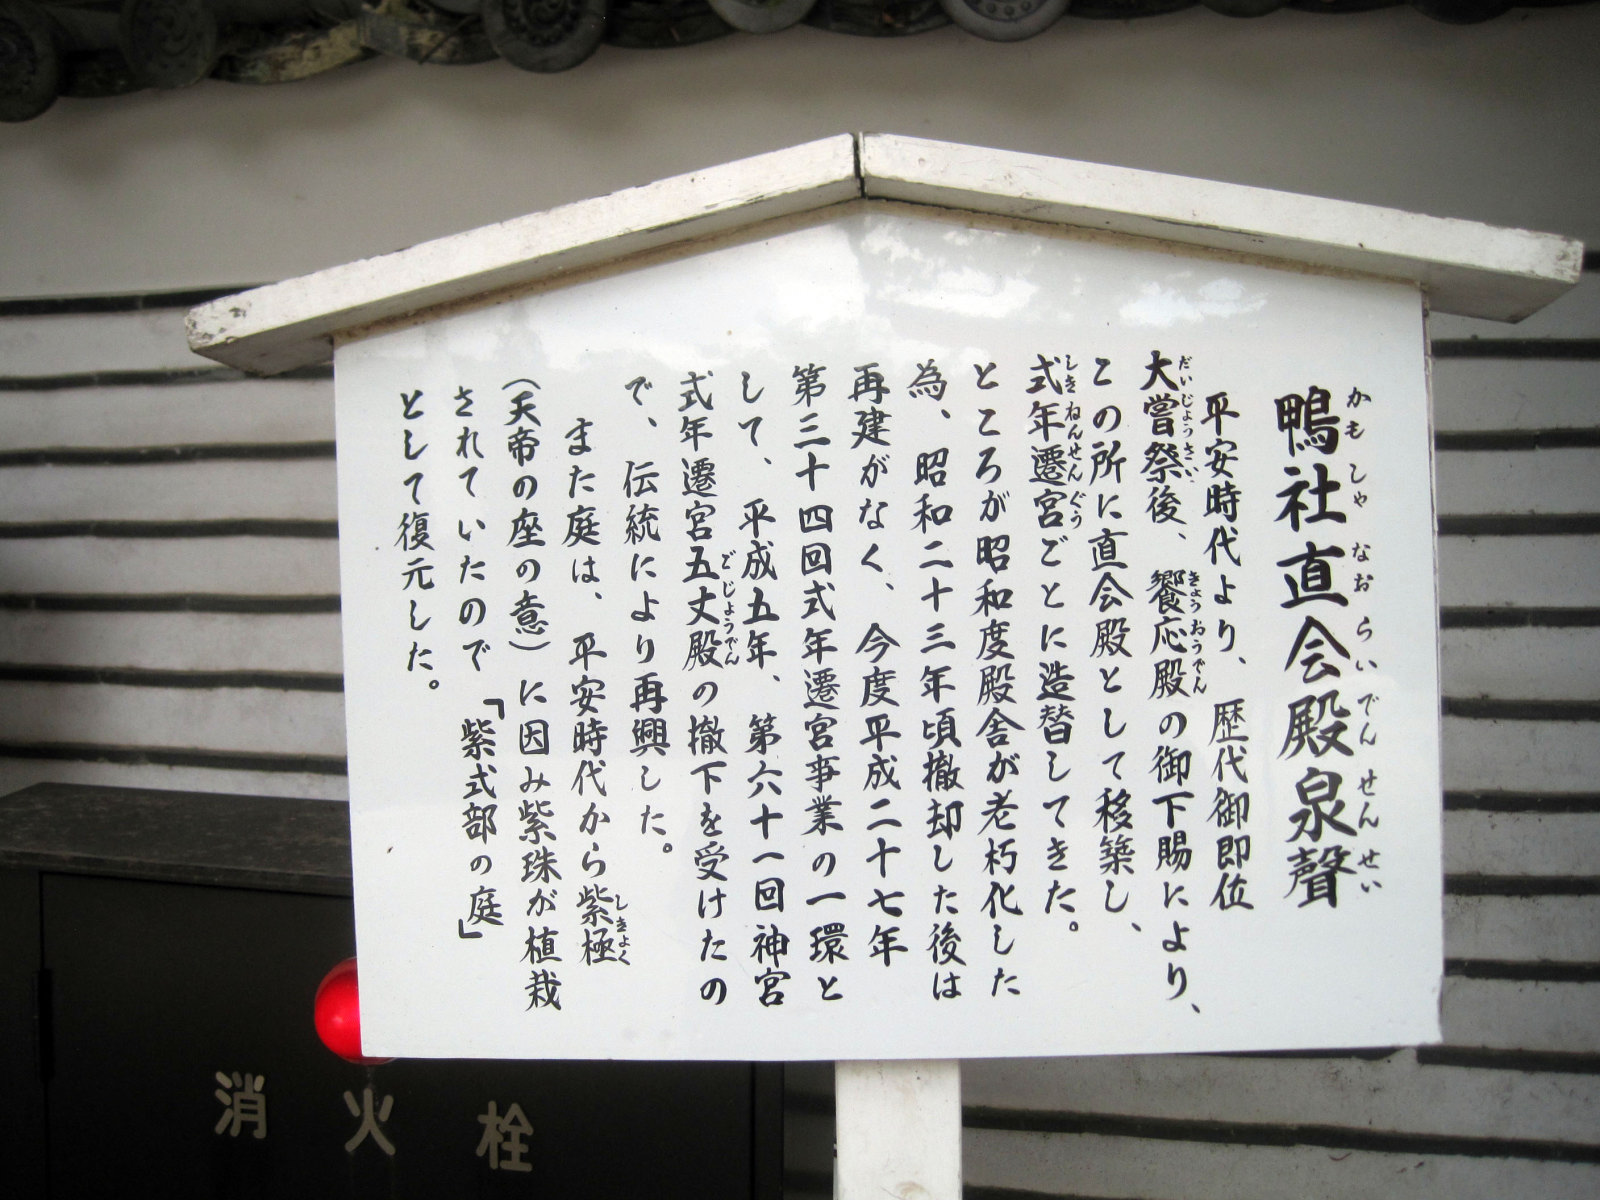 鴨社直会殿泉聲
かもしゃなおらいでんせんせい
平安時代より、歴代御即位
大嘗祭後、饗応殿の御下賜により、
だいじょうさい きょうおうでん
この所に直会殿として移築し、
式年遷宮ごとに造替してきた。
しきねんせんぐう
ところが昭和度殿舎が老朽化した
為、昭和二十三年頃撤却した後は
再建がなく、今度平成二十七年
第三十四回式年遷宮事業の一環と
して、平成五年、第六十一回神宮
式年遷宮五丈殿の撤下を受けたの
ごじょうでん
で、伝統により再興した。
また庭は、平安時代から紫極
しきよく
(天帝の座の意)に因み紫珠が植栽
されていたので「紫式部の庭」
として復元した。
消火栓